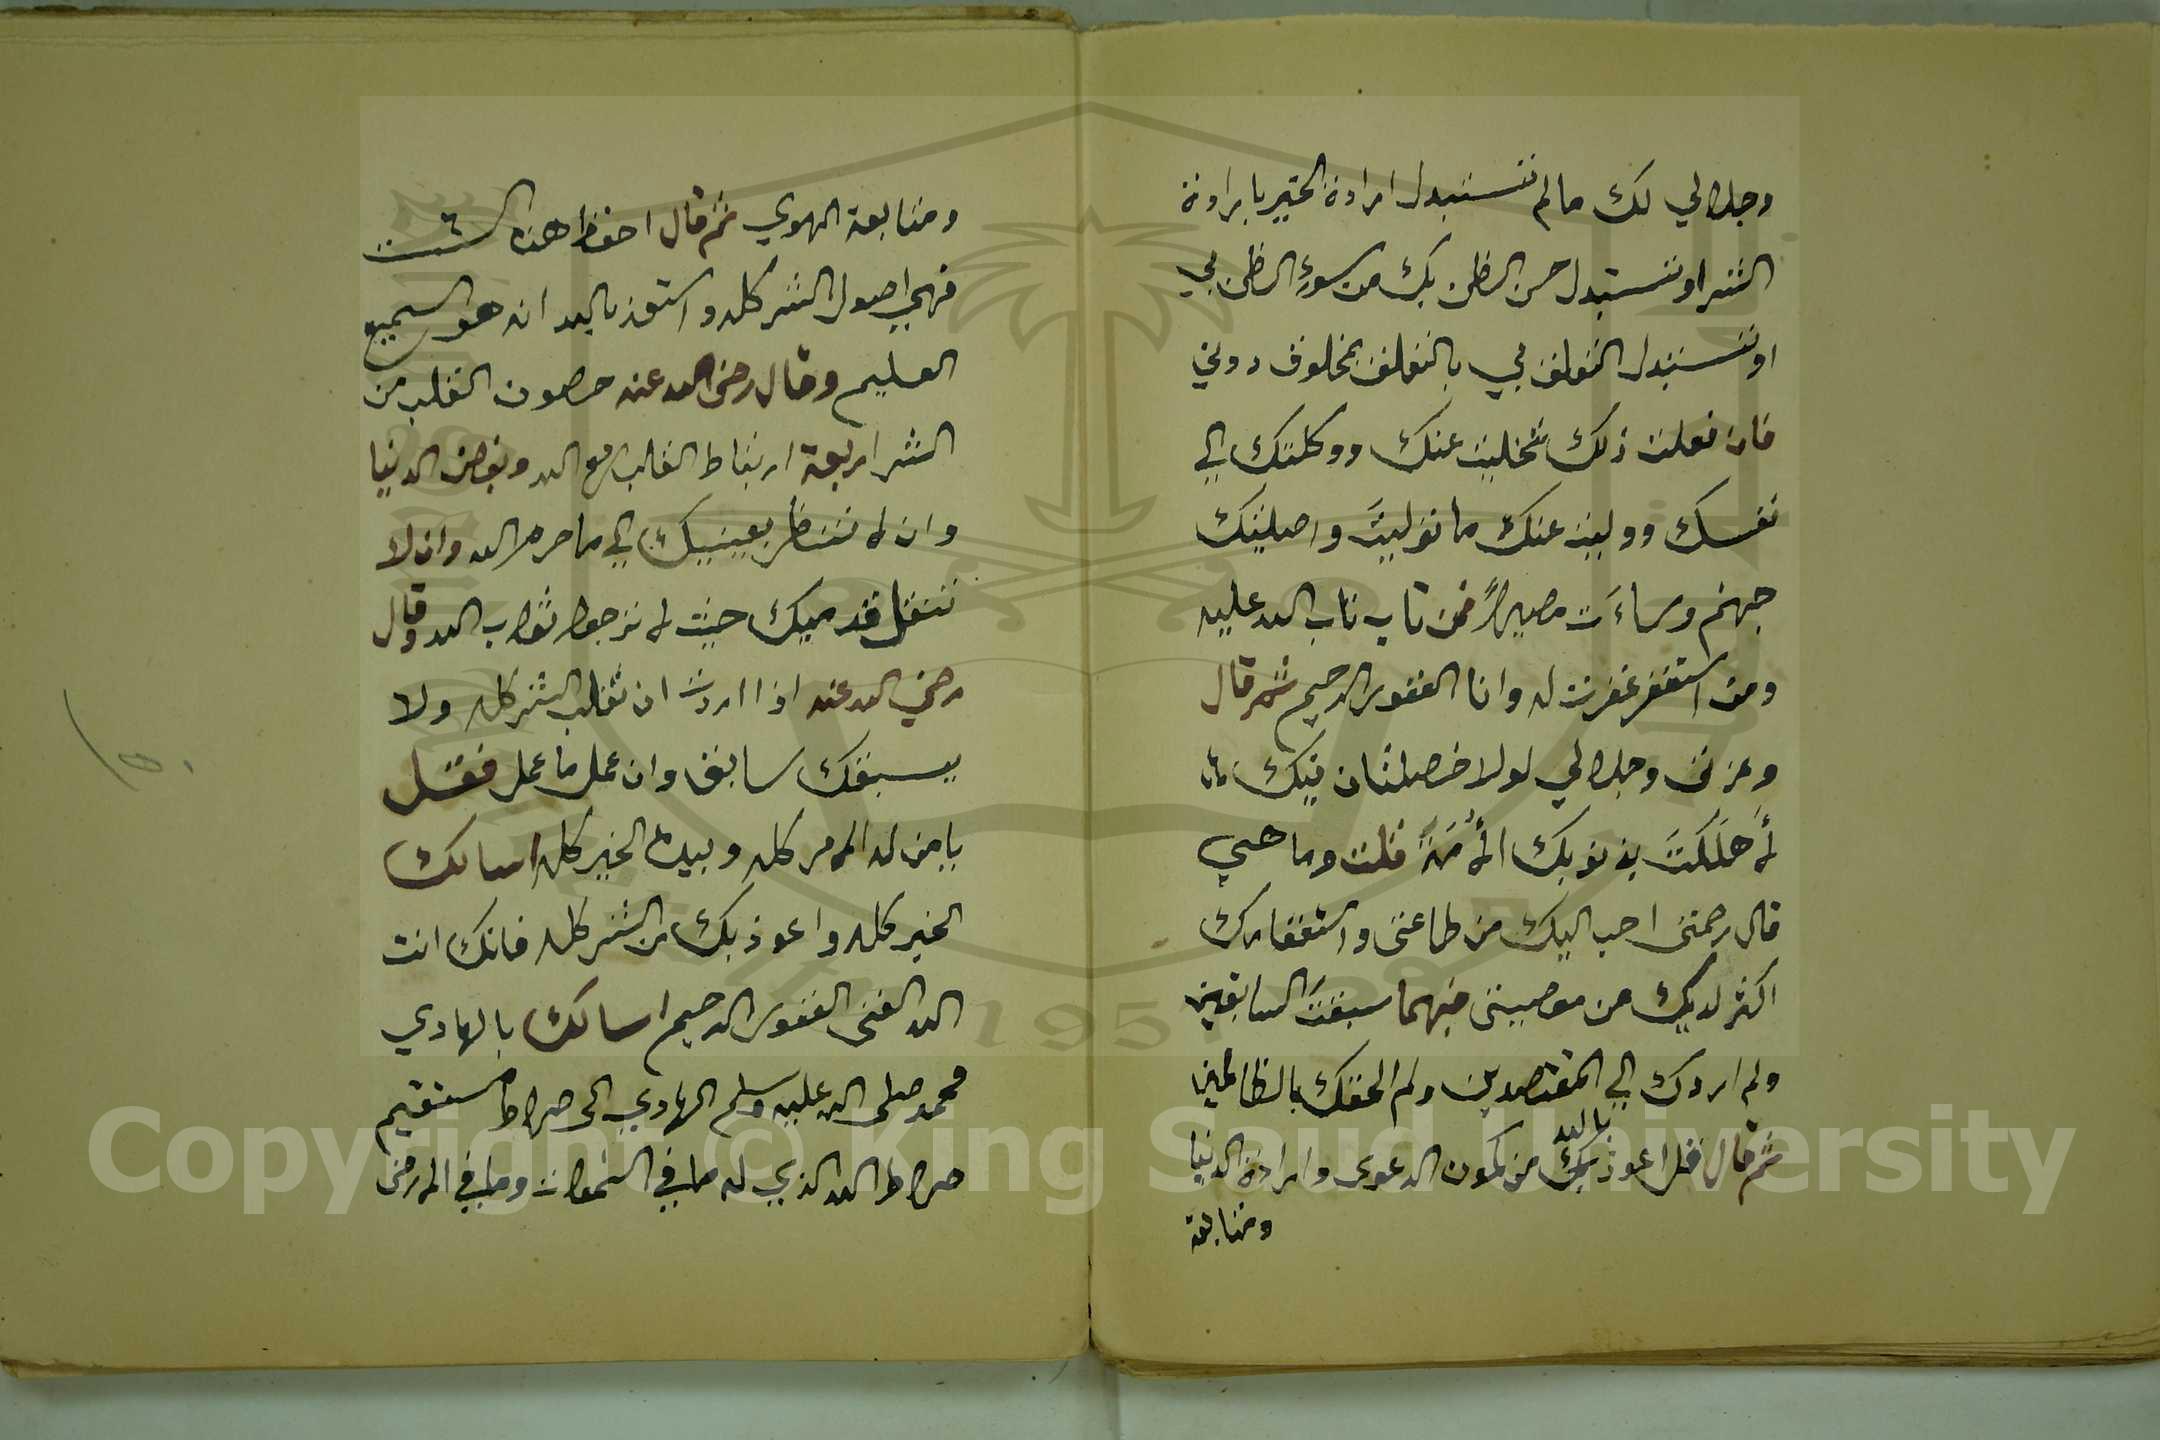 وجلالي لك مالم تستبدل ارادة الخير بارادة
الشر او تستبدل حسن الظن بك من سوء الظن بي
او تستبدل التعلق بي بالتعلق بمخلوق دوني
فان فعلت ذلك تخليت عنك ووكلتك الي
نفسك ووليت عنك ما توليتَ واصليتك
جهنم وساءَت مصيرًا فمن تاب تاب الله عليه
ومن استغفر غفرت له وانا الغفور الرحيم ثم قال
وعزتي وجلالي لولا خصلتان فيك
لأهَلَكَتَ بذنوبك الأُمَةَ قلت وما هي
قال رحمتي احب اليك من طاعتي واستغفارك
اكثر لديك من معصيتي فبهما سبقتَ السابقين
ولم اردك الي المقتصدين ولم الحقك بالظالمين
بالله
ثم قال قل اعوذ بك من كمون الدعوى وارادة الدنيا
ومتابعة
ومتابعة الهوي ثم قال احفظ هذه الست
٦
فهي اصول الشر كله واستعذ بالله انه هو السميع
العليم وقال رضي الله عنه حصون القلب من
الشر اربعة ارتباط القلب مع الله وبغض الدنيا
وان لا تنظر بعينيك الي ما حرم الله وان لا
تنقل قدميك حيث لا ترجوا ثواب الله وقال
رضي الله عنه اذا اردت ان تغلب الشر كله ولا
يسبقك سابق وان عمل ما عمل فقل
يا من له الامر كله وبيده الخير كله اسالك
الخير كله واعوذ بك من الشر كله فانك انت
الله الغني الغفور الرحيم اسالك بالهادي
محمد صلى الله عليه وسلم الهادي الى صراط مستقيم
صراط الله الذي له ما في السموات وما في الارض
Copyright © King Saud University
1957